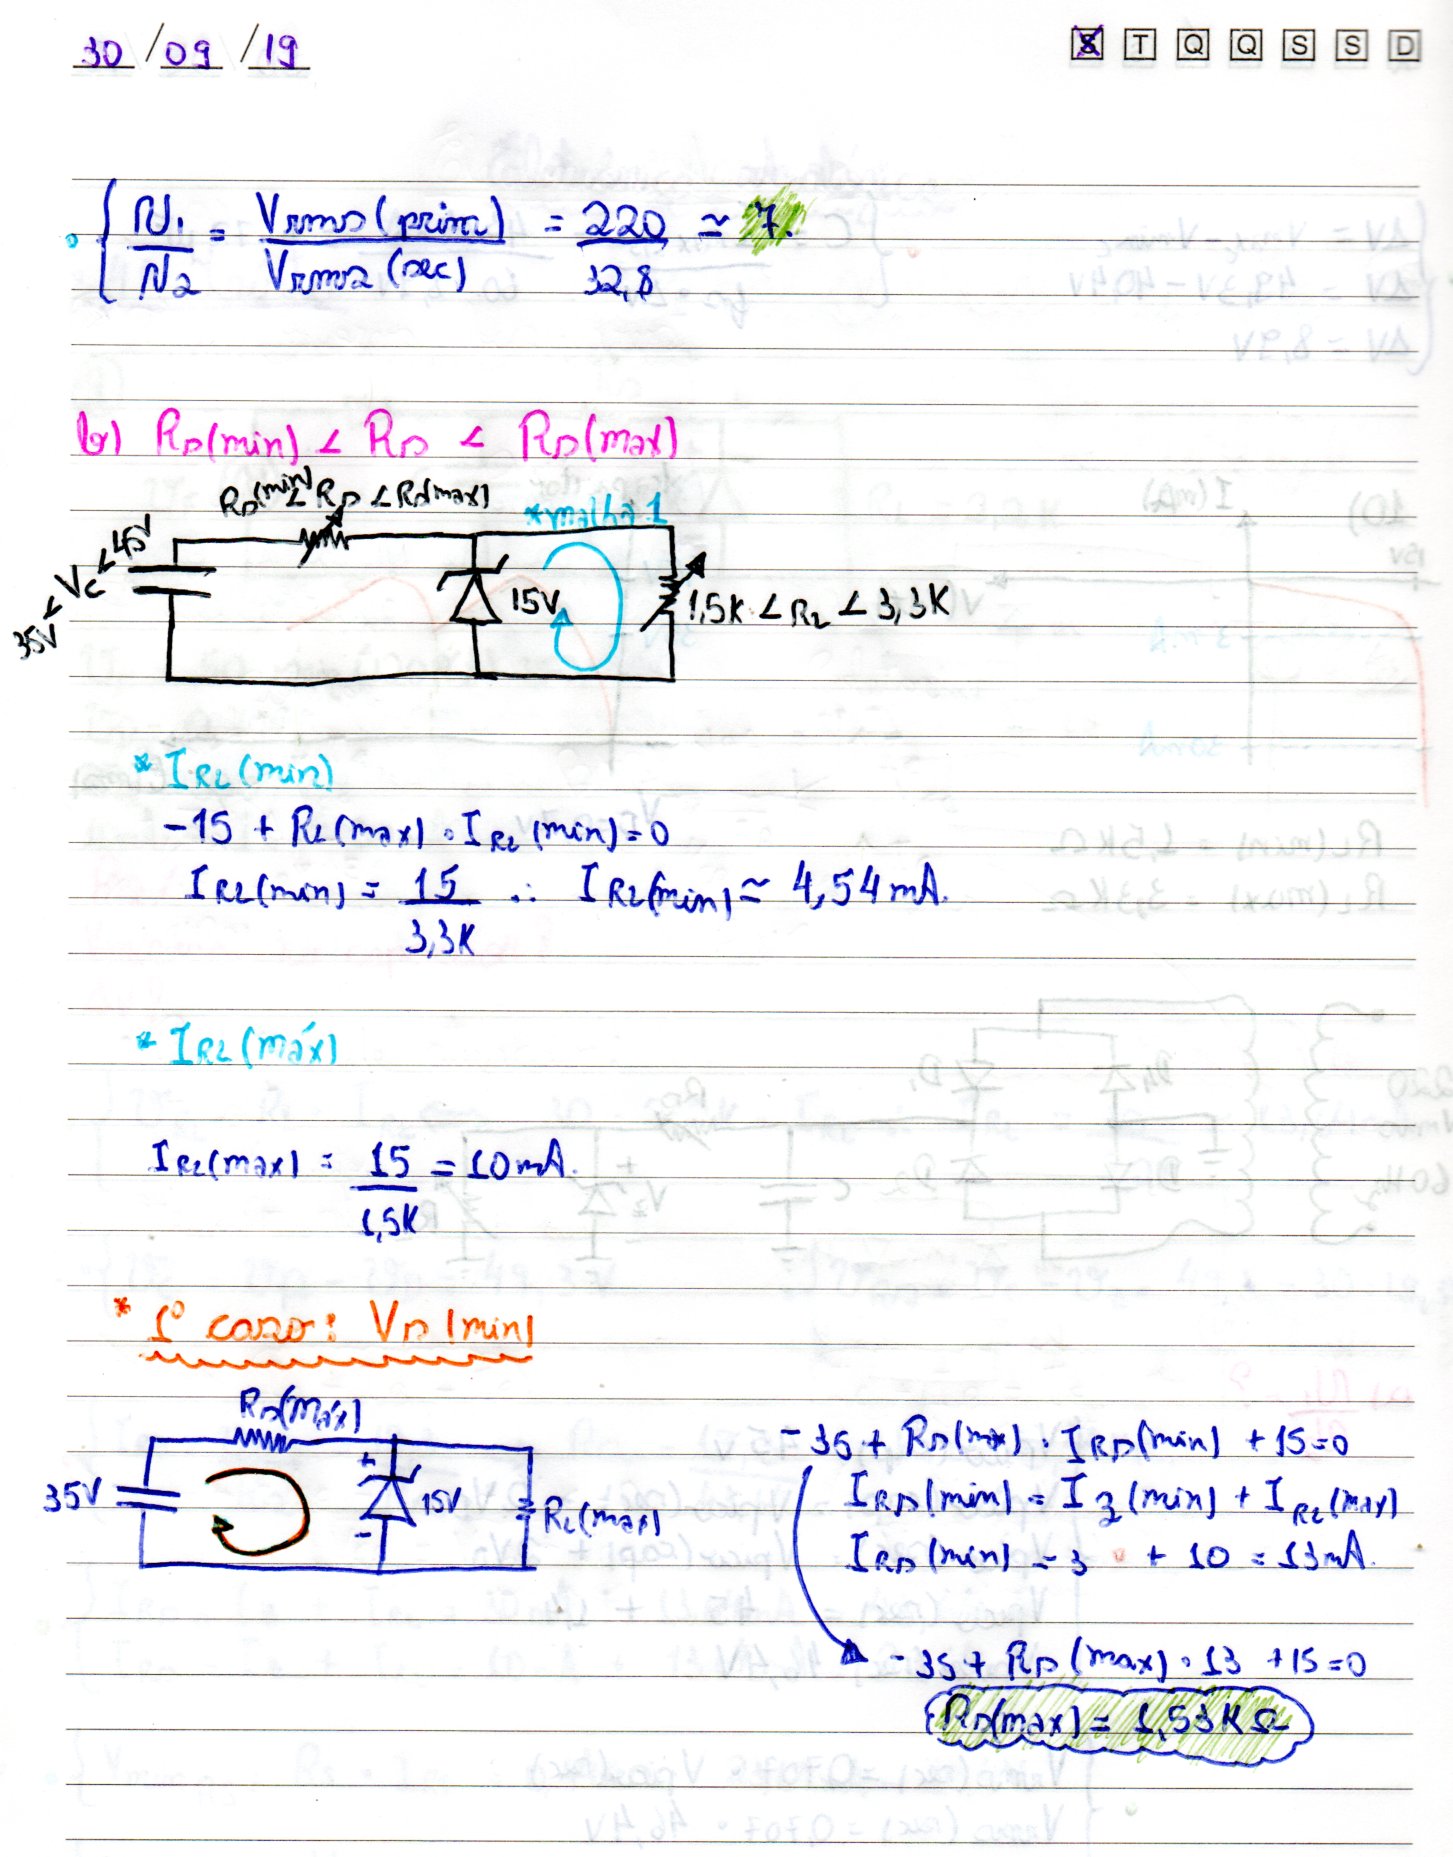 30/09/19
S T Q Q S S D
N1/N2 = Vrms(prim)/Vrms2(sec) = 220/32,8 ≃ 7.
b) RD(min) < RD < RD(max)
RD(min) < RD < RD(max)
*malha 1
35V < Vc < 45V
15V
1,5K < RL < 3,3K
* IRL(min)
-15 + RL(max) . IRL(min) = 0
IRL(min) = 15/3,3K ∴ IRL(min) ≃ 4,54mA.
* IRL(máx)
IRL(max) = 15/1,5K = 10mA.
* 1º caso: VD(min)
RD(máx)
35V
+
15V
-
RL(max)
-35 + RD(max) . IRD(min) + 15 = 0
IRD(min) = I3(min) + IRL(max)
IRD(min) = 3 + 10 = 13mA.
-35 + RD(max) . 13 + 15 = 0
RD(max) = 1,53KΩ